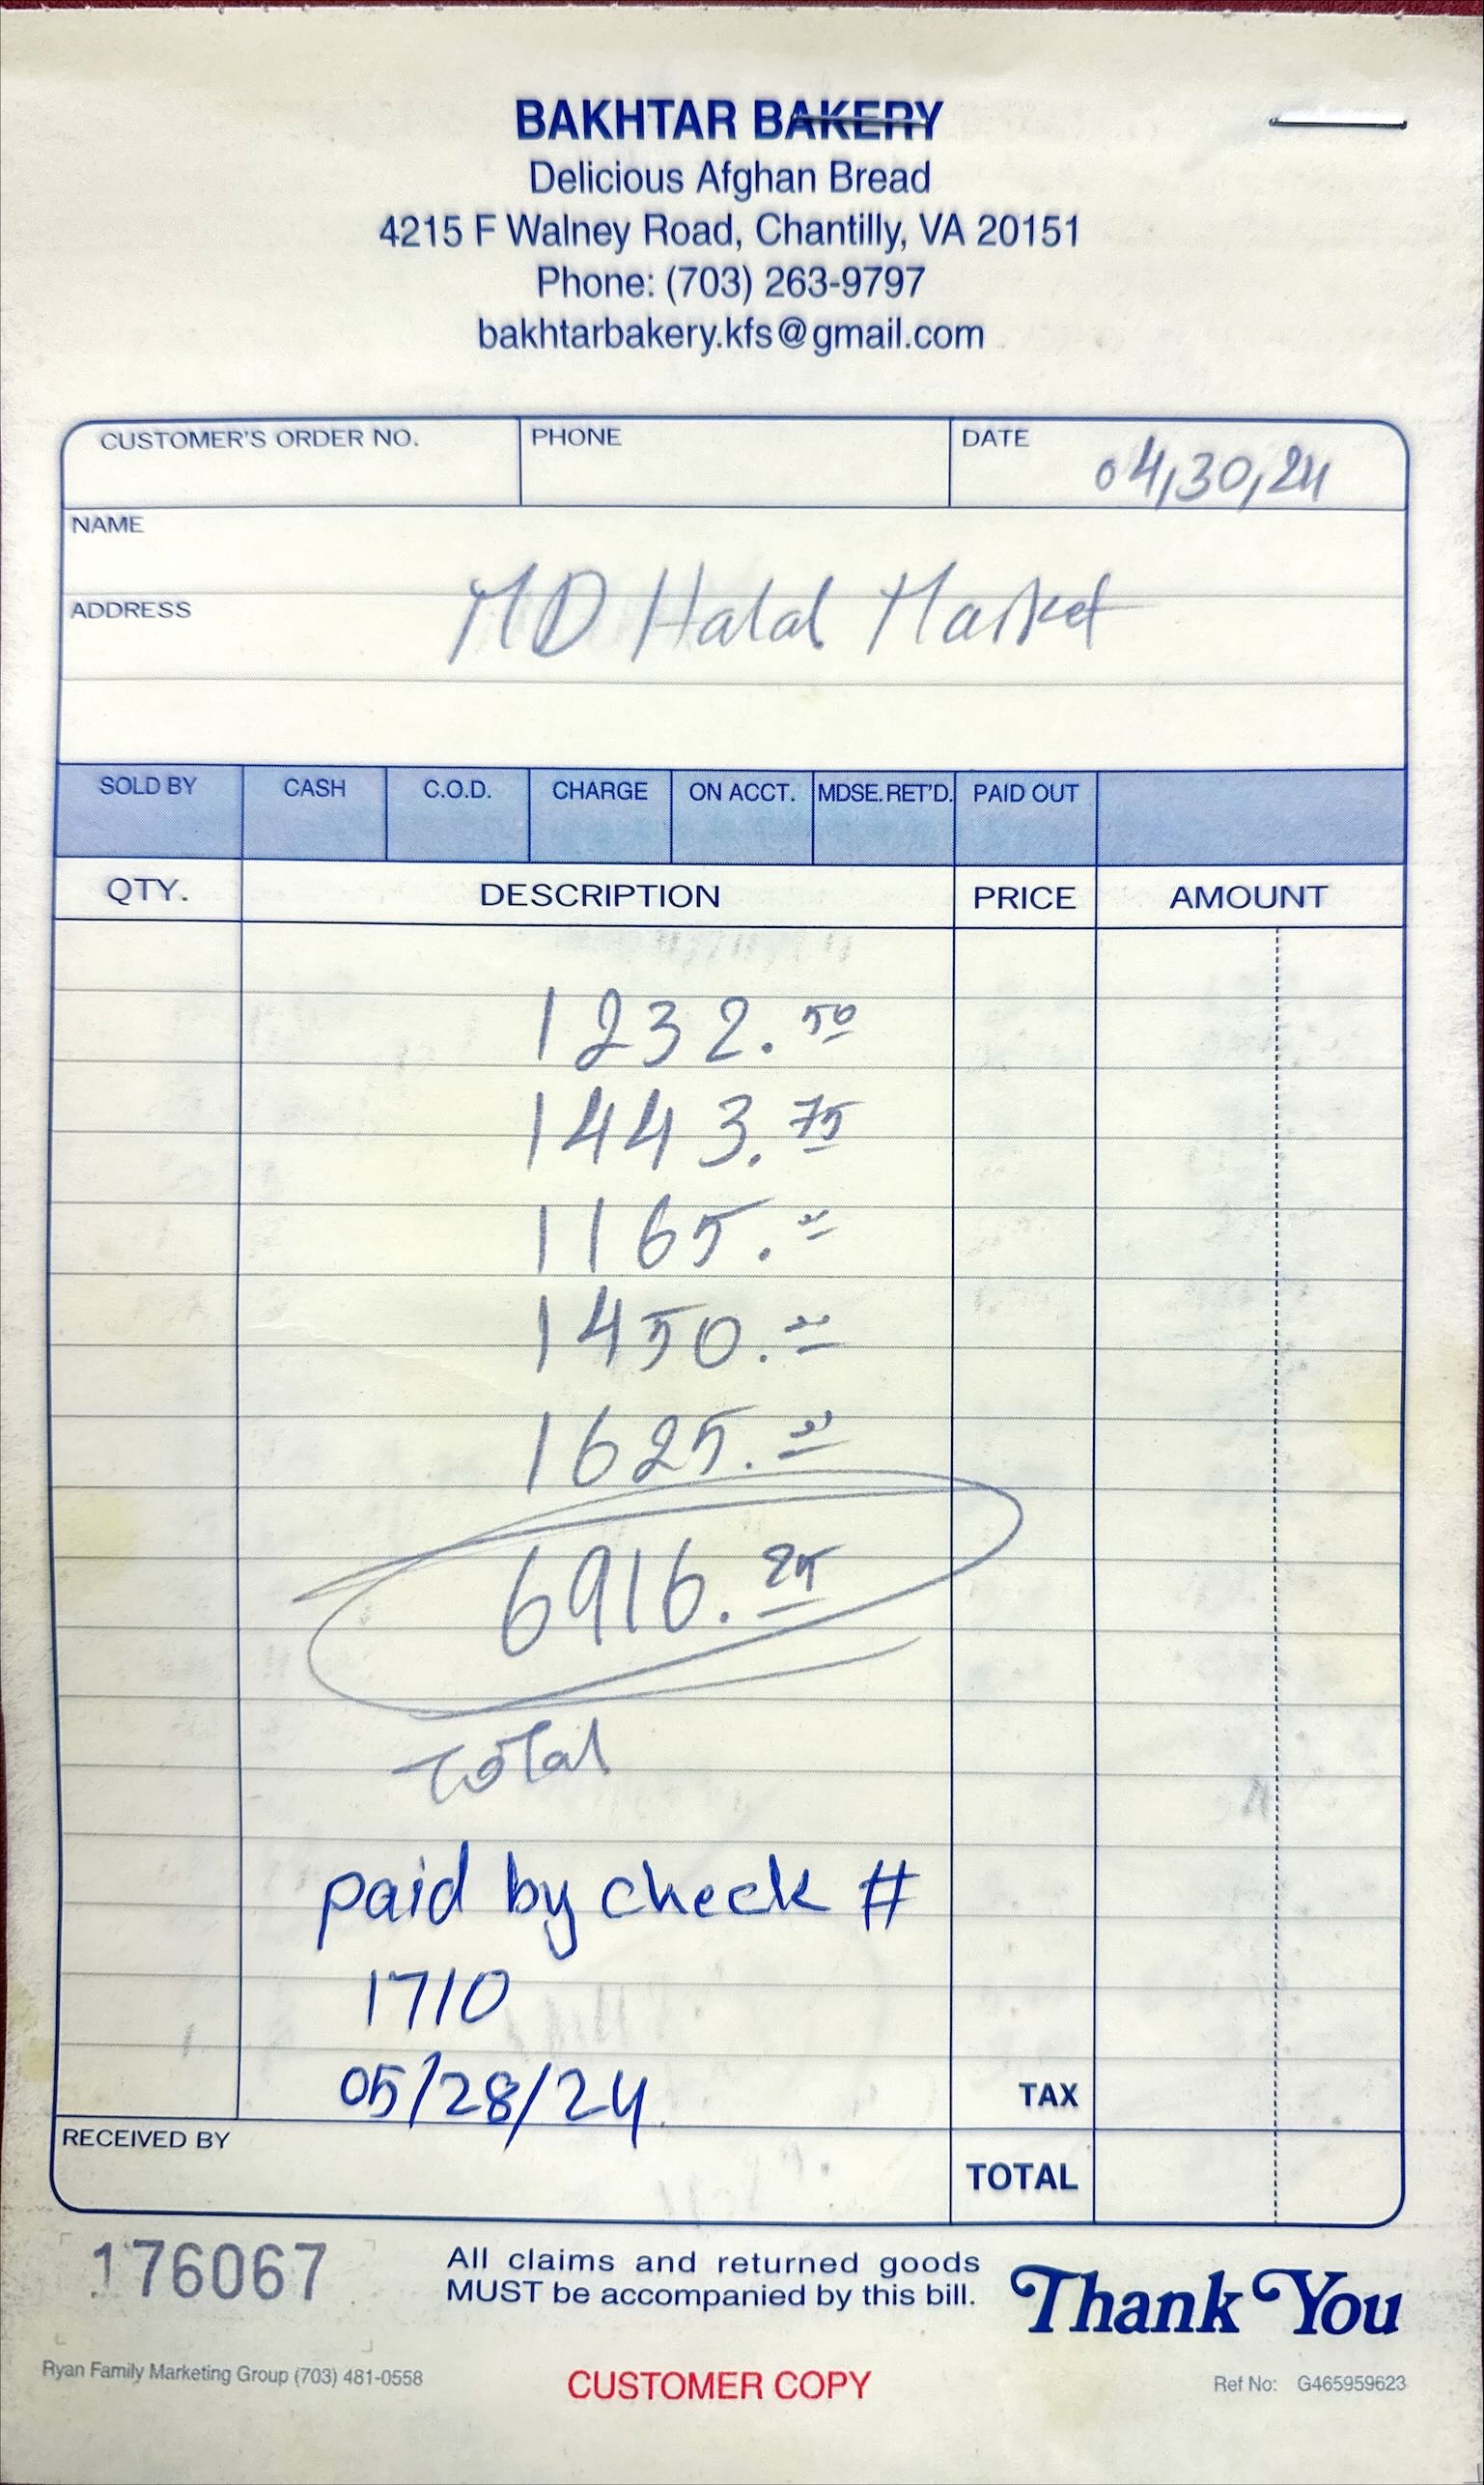 BAKHTAR BAKERY
Delicious Afghan Bread
4215 F Walney Road, Chantilly, VA 20151
Phone: (703) 263-9797
bakhtarbakery.kfs@gmail.com
CUSTOMER'S ORDER NO. PHONE DATE 04,30,24
NAME
ADDRESS MD Halal Market
SOLD BY CASH C.O.D. CHARGE ON ACCT. MDSE. RET'D. PAID OUT
QTY. DESCRIPTION PRICE AMOUNT
1232.50
1443.75
1165.00
1450.00
1625.00
6916.25
Total
paid by check #
1710
05/28/24
TAX
RECEIVED BY
TOTAL
176067
All claims and returned goods
MUST be accompanied by this bill.
Thank You
Ryan Family Marketing Group (703) 481-0558
CUSTOMER COPY
Ref No: G465959623